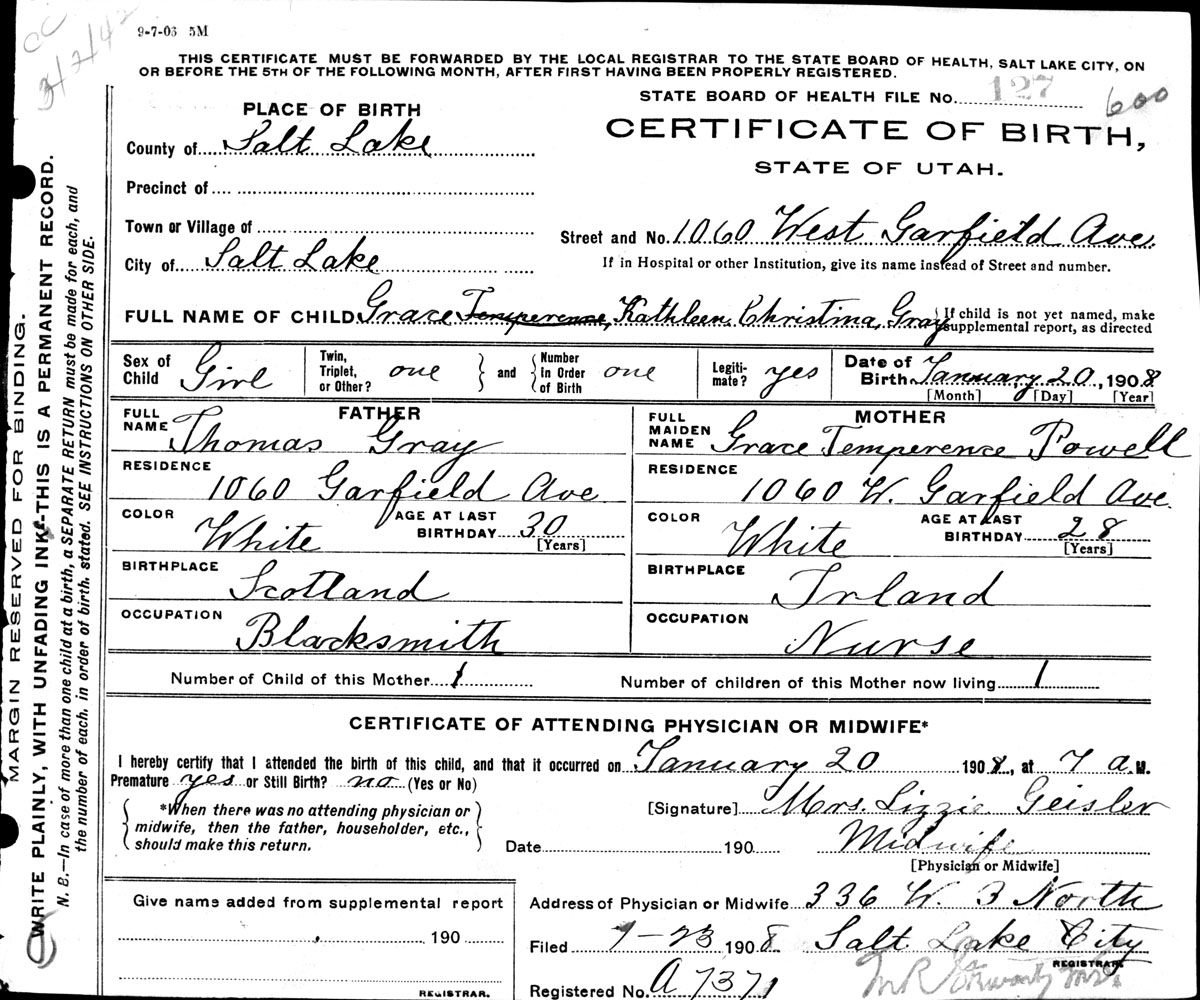 CC
3/2/42
9-7-03 5M
THIS CERTIFICATE MUST BE FORWARDED BY THE LOCAL REGISTRAR TO THE STATE BOARD OF HEALTH, SALT LAKE CITY, ON
OR BEFORE THE 5TH OF THE FOLLOWING MONTH, AFTER FIRST HAVING BEEN PROPERLY REGISTERED.
STATE BOARD OF HEALTH FILE No. 127 600
PLACE OF BIRTH
CERTIFICATE OF BIRTH,
STATE OF UTAH.
County of Salt Lake
Precinct of
Town or Village of
Street and No. 1060 West Garfield Ave.
City of Salt Lake
If in Hospital or other Institution, give its name instead of Street and number.
FULL NAME OF CHILD Grace Temperense, Kathleen, Christina, Gray
If child is not yet named, make
supplemental report, as directed
Sex of Child Girl
Twin, Triplet, or Other? one and Number In Order of Birth one
Legiti-mate? yes
Date of Birth January 20, 1908
[Month] [Day] [Year]
FATHER
FULL NAME Thomas Gray
RESIDENCE
1060 Garfield Ave
COLOR White AGE AT LAST BIRTHDAY 30
[Years]
BIRTHPLACE
Scotland
OCCUPATION
Blacksmith
MOTHER
FULL MAIDEN NAME Grace Temperense Powell
RESIDENCE
1060 W. Garfield Ave.
COLOR White AGE AT LAST BIRTHDAY 28
[Years]
BIRTHPLACE
Irland
OCCUPATION
Nurse
Number of Child of this Mother 1 Number of children of this Mother now living 1
CERTIFICATE OF ATTENDING PHYSICIAN OR MIDWIFE*
I hereby certify that I attended the birth of this child, and that it occurred on January 20 1908, at 7 a.M.
Premature yes or Still Birth? no (Yes or No)
*When there was no attending physician or
midwife, then the father, householder, etc.,
should make this return.
[Signature] Mrs. Lizzie Geisler
Date 190 Midwife
[Physician or Midwife]
Give name added from supplemental report
190
REGISTRAR.
Address of Physician or Midwife 336 W. 3 North
Filed 1-23 1908 Salt Lake City
REGISTRAR.
Registered No. A 7371
MARGIN RESERVED FOR BINDING.
WRITE PLAINLY, WITH UNFADING INK-THIS IS A PERMANENT RECORD.
N. B.—In case of more than one child at a birth, a SEPARATE RETURN must be made for each, and
the number of each, in order of birth, stated. SEE INSTRUCTIONS ON OTHER SIDE.